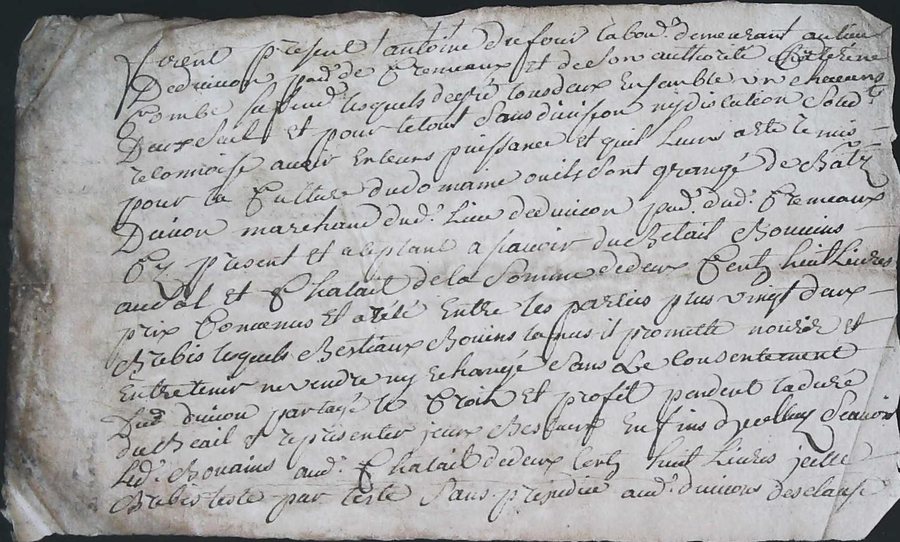 furent présent antoine drefour labour. demeurant au lieu
Deduivon pad. de Cremeaux et de son authorité Catherine
Combe sa fem. lesquels degré tous deux Ensamble un chacuns
Deux seul et pour le tout Sans division ny discution Solid.
reconnoise avoir en leurs puissance et quil leurs a été remis
pour la Culture dudomaine ou ils sont grangé de
Duivon marchand dud. Lieu deduivon pad. dud. Cremeaux
Cy present et aceptant a scavoir du Betail Bouvins
au Chatail de la Somme dedeux Cent huit Livres
prix Convenus et arété Entre les parties plus vingt deux
Brebis lesquels Bestiaux Bovins il promette nourir et
Entretenir ne vendre ny Echangé Sans Le Consentement
Dud. duivon partagé le Croix et profit pendent la duré
du Beail et representer Bestiaux En fins dycelluy Scavoir
Led. Bouains aud. Chatail dedeux Cent huit Livres
Brebis teste par teste Sans prejudice aud. duivons des clause